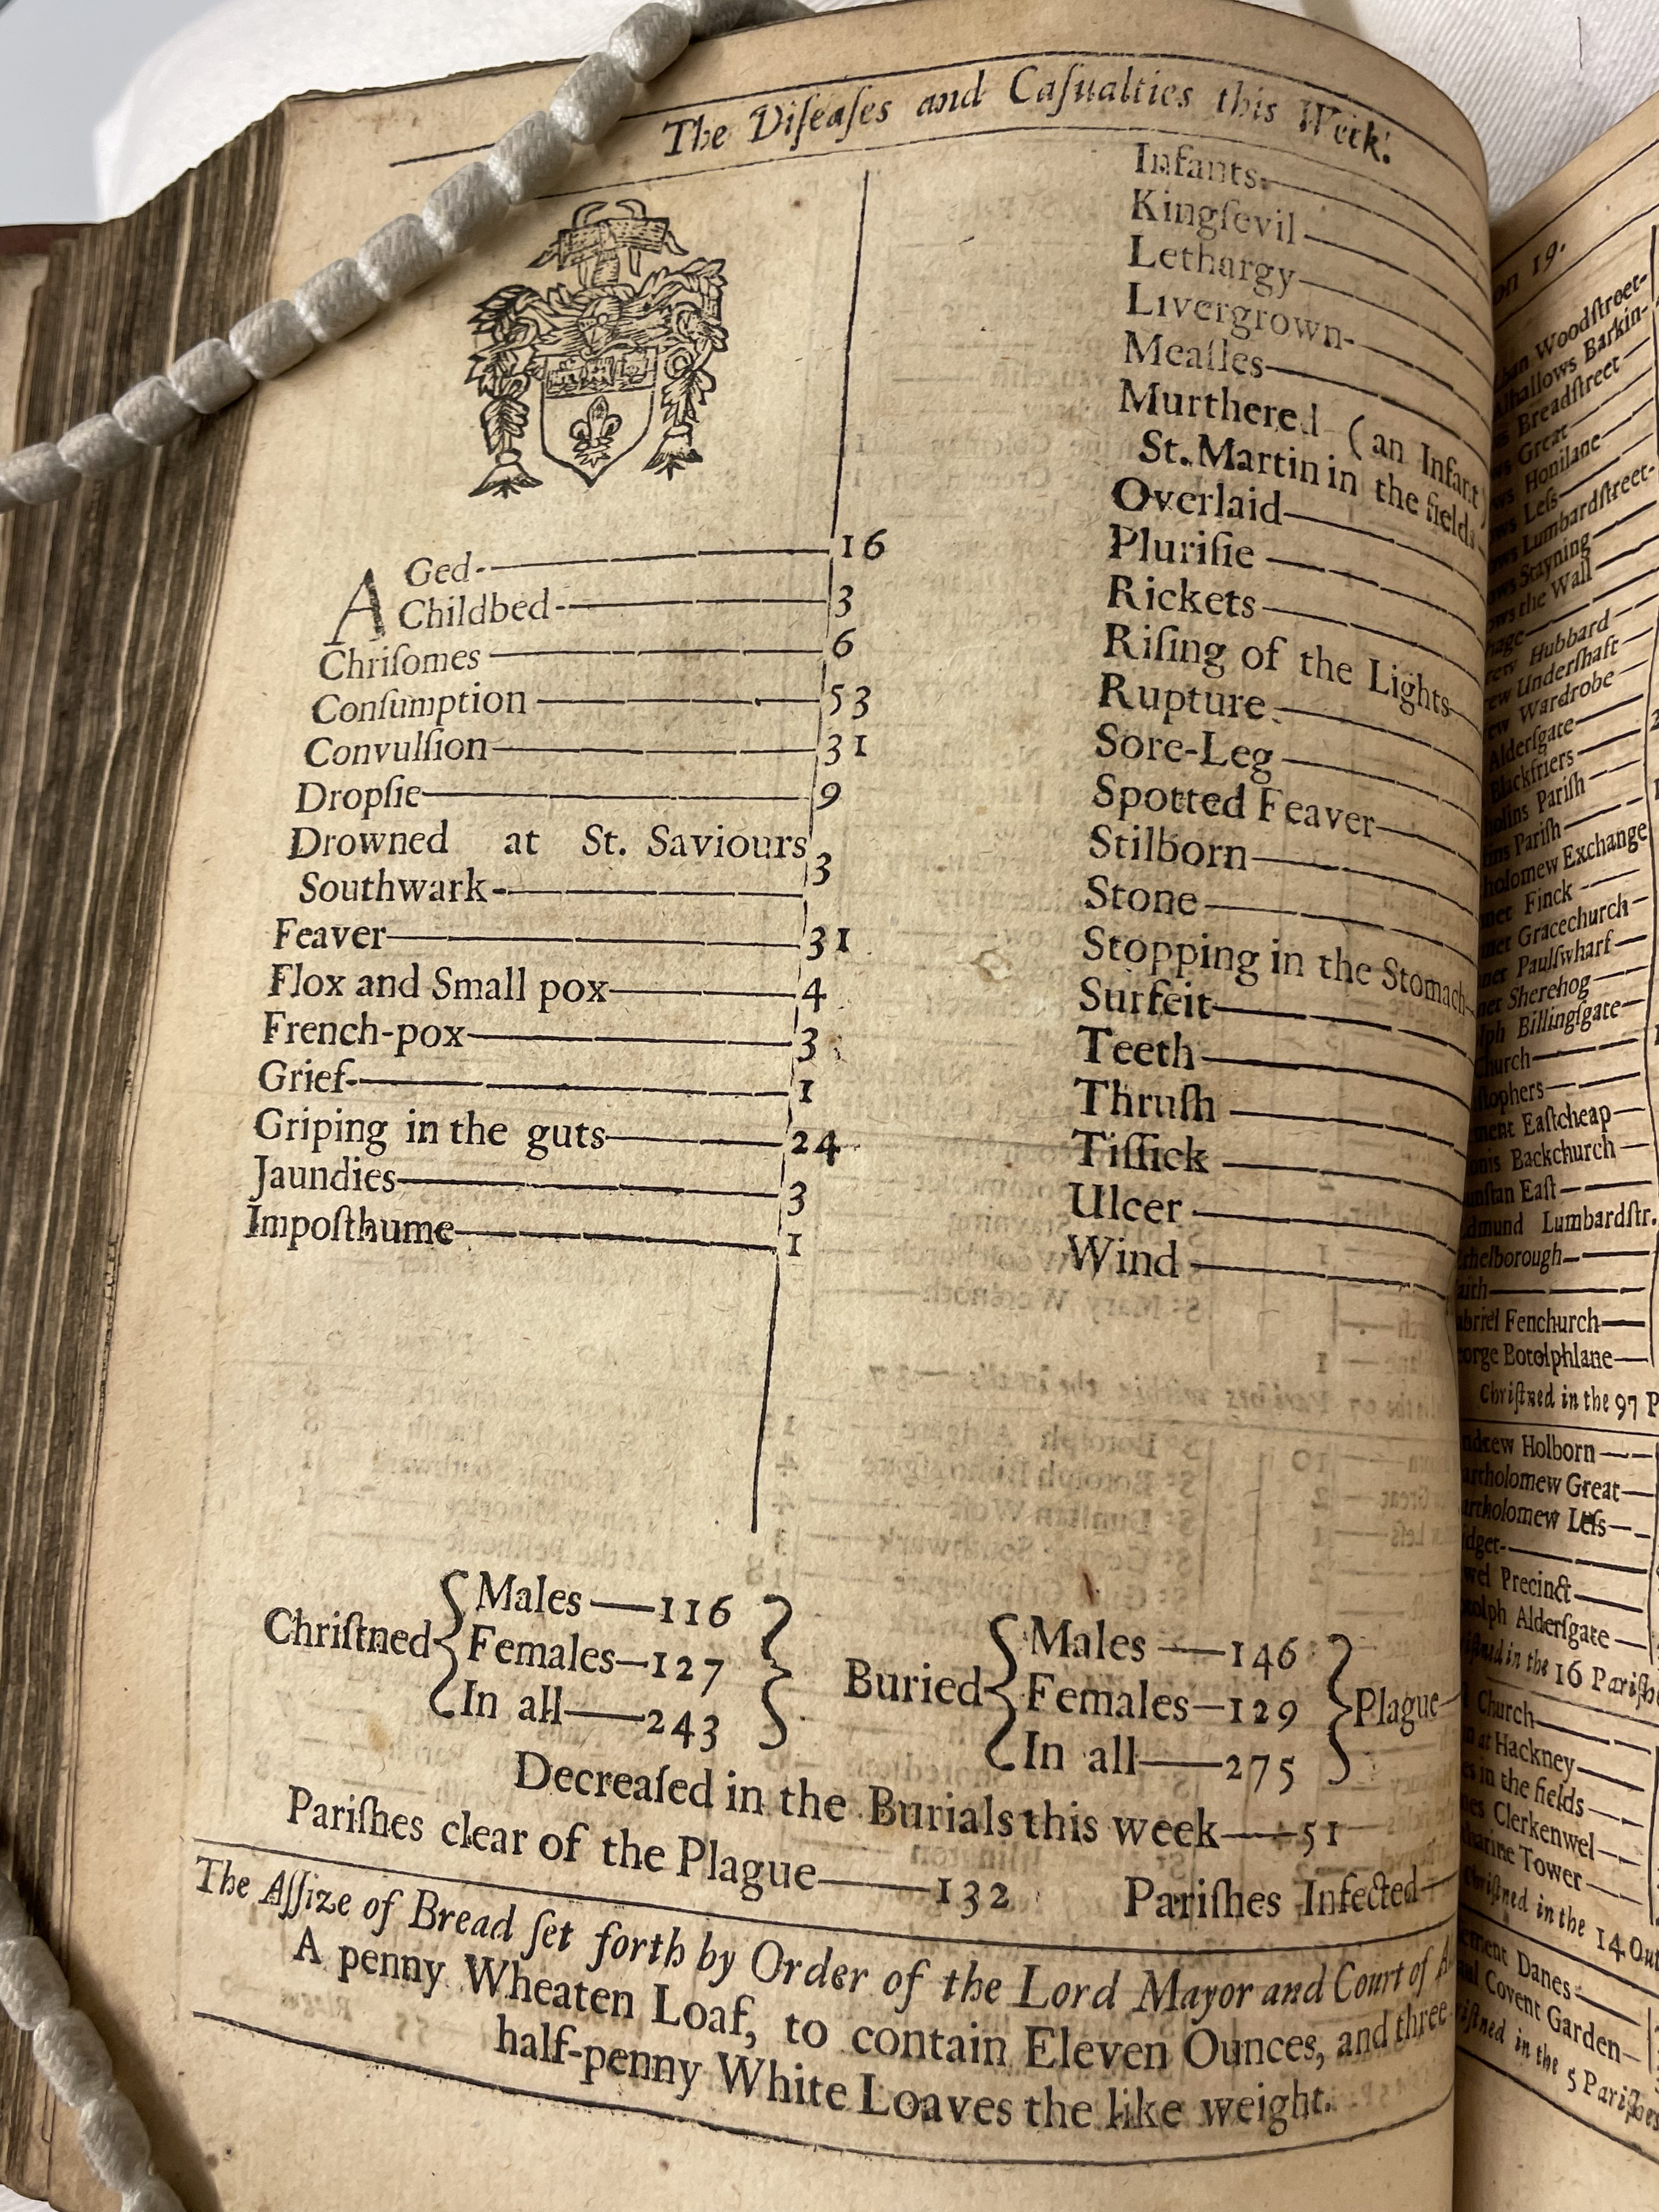 The Diſeaſes and Caſualties this Week.
AGed 16
Childbed 3
Chriſomes 6
Conſumption 53
Convulſion 31
Dropſie 9
Drowned at St. Saviours
Southwark 3
Feaver 31
Flox and Small pox 4
French-pox 3
Grief 1
Griping in the guts 24
Jaundies 3
Impoſthume 1
Infants
Kingſevil
Lethargy
Livergrown
Meaſles
Murthered (an Infant)
St. Martin in the fields
Overlaid
Pluriſie
Rickets
Riſing of the Lights
Rupture
Sore-Leg
Spotted Feaver
Stilborn
Stone
Stopping in the Stomach
Surfeit
Teeth
Thruſh
Tiſſick
Ulcer
Wind
Chriſtned
Males—116
Females—127
In all—243
Buried
Males—146
Females—129
In all—275
Plague
Decreaſed in the Burials this week—51
Pariſhes clear of the Plague—132 Pariſhes Infected
The Aſſize of Bread ſet forth by Order of the Lord Mayor and Court of
A penny Wheaten Loaf, to contain Eleven Ounces, and three
half-penny White Loaves the like weight.
19.
Woodſtreet
Barkin
Breadſtreet
Great
Honilane
Leſs
Lumbardſtreet
Stayning
the Wall
Hubbard
Underſhaft
Wardrobe
Alderſgate
Blackfriers
Pariſh
Pariſh
Exchange
Finck
Gracechurch
Paulſwharf
Sherehog
Billingſgate
Eaſtcheap
Backchurch
Eaſt
Lumbardſtr.
Fenchurch
Botolphlane
Chriſtned in the 97 P
Holborn
Great
Leſs
Precinct
Alderſgate
in the 16 Pariſhes
Church
at Hackney
in the fields
Clerkenwel
Tower
in the 14 Out
Danes
Covent Garden
in the 5 Pariſhes